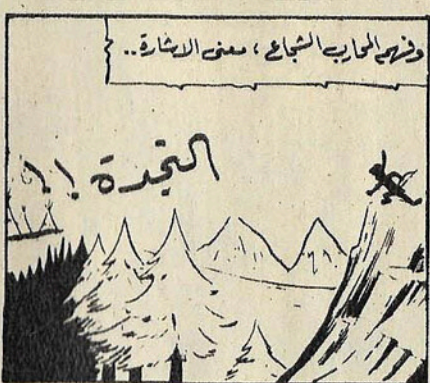 وفهم المحارب الشجاع ، معنى الاشارة ..
النجدة !!